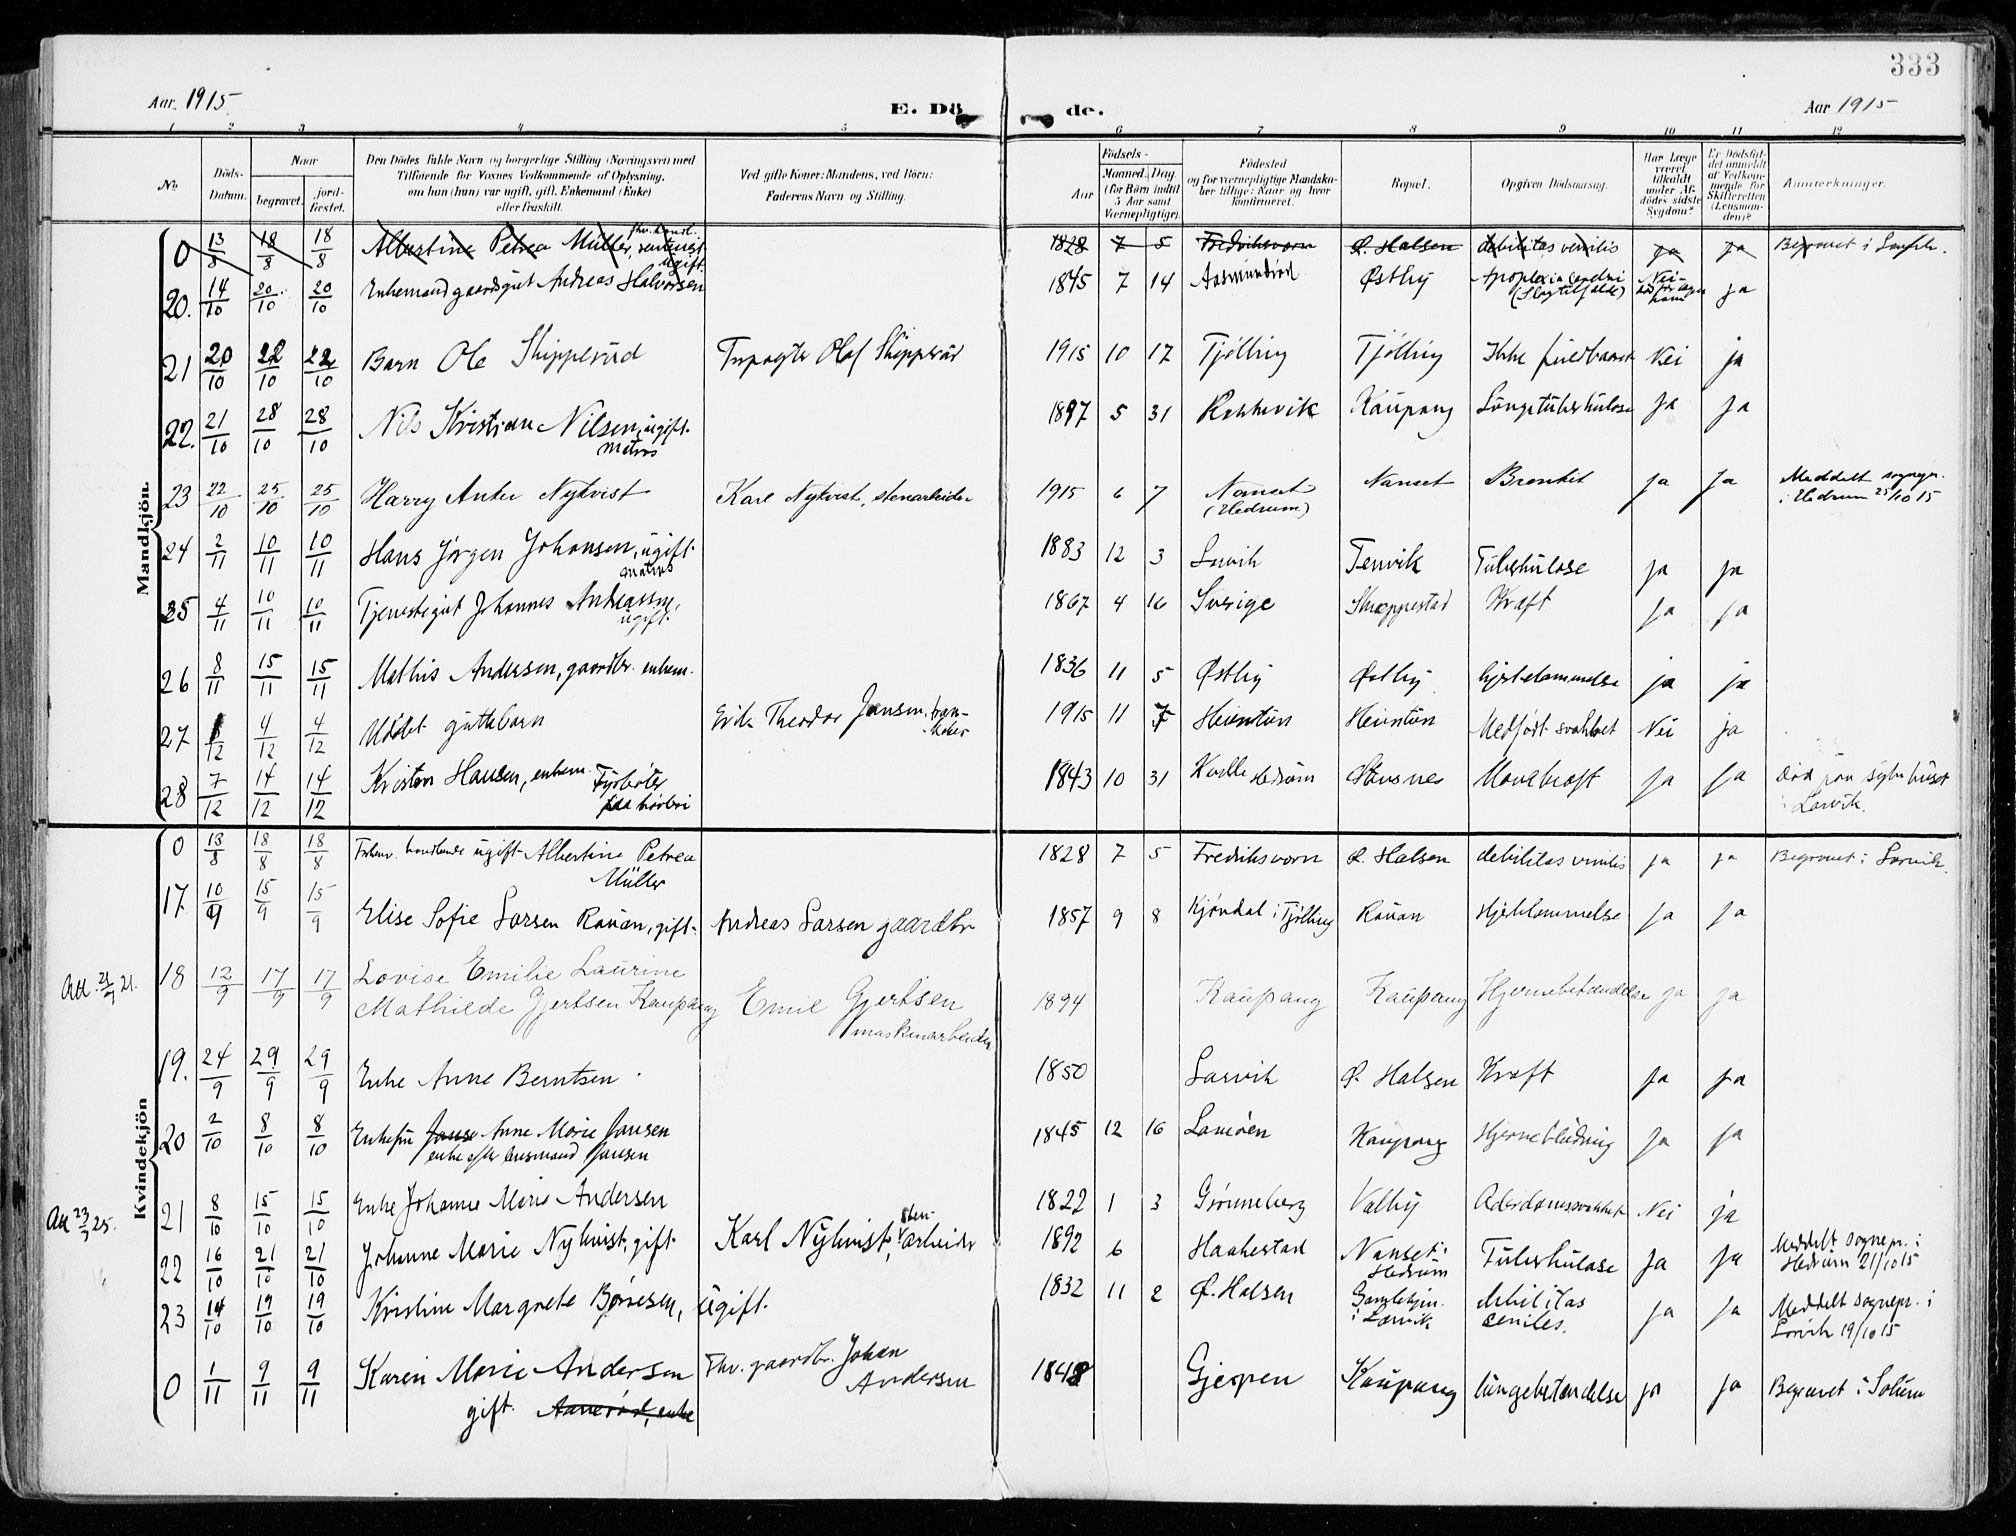 333
Aar. 1915. E. Dö de. Aar 1915
1 2 3 4 5 6 7 8 9 10 11 12
No. Döds-Datum. Naar begravet. jordfæstet. Den Dödes fulde Navn og borgerlige Stilling (Næringsvei) med Tilföiende for Voxnes Vedkommende af Oplysning, om han (hun) var ugift, gift, Enkemand (Enke) eller fraskilt. Ved gifte Koner: Mandens, ved Börn: Faderens Navn og Stilling. Födsels- Aar Maaned. Dag (for Börn indtil 5 Aar samt Værnepligtige). Födested og for værnepligtige Mandskaber tillige: Naar og hvor konfirmeret. Bopæl. Opgiven Dödsaarsag. Har Læge været tilkaldt under Afdödes sidste Sygdom? Er Dödsfaldet anmeldt af Vedkommende for Skifteretten (Lensmanden)? Anmerkninger.
Mandkjön.
0 13/8 18/8 18/8 Albertine Petrea Müller, ugift. 1828 7 5 Fredriksværn Ø. Halsen debilitas ja ja Begravet i
20. 14/10 20/10 20/10 Enkemand gaardgut Andreas Halvorsen 1845 7 14 Aasmundrød Østby Apoplexia cerebri (Slagtilfælde) Nei ja
21 20/10 22/10 22/10 Barn Ole Skipperud Forpagter Olaf Skipperud 1915 10 17 Tjølling Tjølling Ikke fuldbaaret Nei ja
22. 21/10 28/10 28/10 Nils Kristian Nilsen, ugift. matros 1897 5 31 Rekkevik Kaupang Lungetuberkulose ja ja
23 22/10 25/10 25/10 Harry Anker Nykvist Karl Nykvist, stenarbeider 1915 6 7 Nanset (Hedrum) Nanset Bronkit ja ja Meddelt sognepr. i Hedrum 25/10 15
24 2/11 10/11 10/11 Hans Jørgen Johansen, ugift. matros 1883 12 3 Larvik Tenvik Tuberkulose ja ja
25 4/11 10/11 10/11 Tjenestegut Johannes Andreassen, ugift. 1867 4 16 Sverige Skreppestad Kræft ja ja
26 8/11 15/11 15/11 Mathis Andersen, gaardbr. enkem. 1836 11 5 Østby Østby hjertelammelse ja ja
27 1/12 4/12 4/12 Udøbt guttebarn Erik Theodor Jansen, 1915 11 7 Heimtun Heimtun Medfødt svakhet Nei ja
28 7/12 14/12 14/12 Kristen Hansen, enkem. Fyrbøter paa høvleri 1843 10 31 Kvelle Hedrum Stusnes Mavekræft ja ja død paa sykehuset i Larvik.
Kvindekjön
0 13/8 18/8 18/8 Forhenv. handlende ugift Albertine Petrea Müller 1828 7 5 Fredriksværn Ø. Halsen debilitas ja ja Begravet i Larvik.
17 10/9 15/9 15/9 Elise Sofie Larsen Rauan, gift. Andreas Larsen gaardbr 1857 9 8 Kjøndal i Tjølling Rauan Hjertelammelse ja ja
Att. 21/9 21. 18 12/9 17/9 17/9 Lovise Emilie Laurine Mathilde Gjertsen Kaupang Emil Gjertsen maskinarbeider 1894 Kaupang Kaupang Hjernebetændelse ja ja
19. 24/9 29/9 29/9 Enke Anne Berntsen. 1850 Larvik Ø. Halsen Kræft ja ja
20 2/10 8/10 8/10 Enkefru Anne Marie Jansen enke efter lensmand Jansen 1845 12 16 Lamøen Kaupang Hjerneblødning ja ja
Att 23/7 25. 21 8/10 15/10 15/10 Enke Johanne Marie Andersen 1822 1 3 Grønneberg Valby Alderdomssvakhet Nei ja
22 16/10 21/10 21/10 Johanne Marie Nykvist, gift. Karl Nykvist, stenarbeider 1892 6 Haakestad Nanset i Hedrum Tuberkulose ja ja Meddelt sognepr. i Hedrum 21/10 15
23 14/10 19/10 19/10 Kristine Margrete Børresen, ugift. 1832 11 2 Ø. Halsen Gamlehjm. i Larvik debilitas seniles. ja ja Meddelt sognepr. i Larvik 19/10 15
0 1/11 9/11 9/11 Karen Marie Andersen gift. Aarrerød, enke Fhv. gaardbr. Johan Andersen 1848 Gjerpen Kaupang lungebetændelse ja ja Begravet i Solum